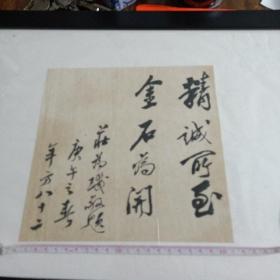 精诚所至
金石为开
莊为璣敬题
庚午之春
年方八十二